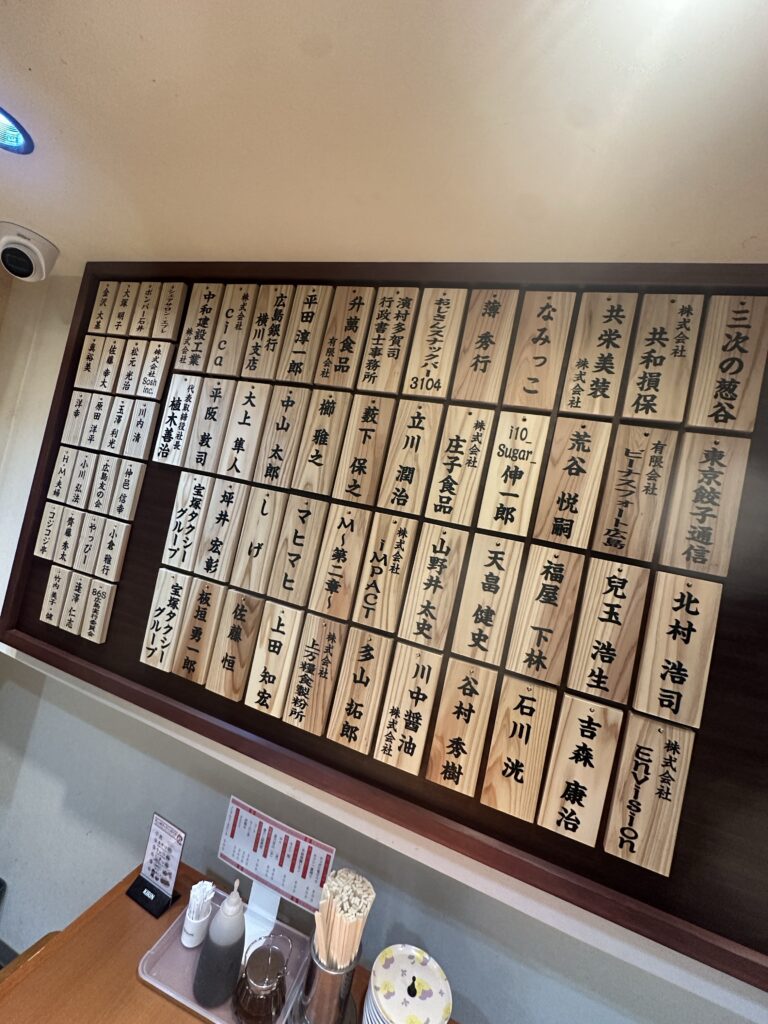 三次の葱谷
株式会社 共和損保
共栄美装 株式会社
なみっこ
薄 秀行
おじさんスナックバー 3104
濱村多賀司 行政書士事務所
升萬食品 有限会社
平田 淳一郎
広島銀行 横川支店
株式会社 cica
中和建設工業 株式会社
東京餃子通信
有限会社 ビーナスフォート広島
荒谷 悦嗣
i10_Sugar_ 伸一郎
株式会社 庄子食品
立川 潤治
藪下 保之
櫛 雅之
中山 太郎
大上 隼人
平阪 敦司
代表取締役社長 植木善治
北村 浩司
兒玉 浩生
福屋 下林
天畠 健史
山野井 太史
株式会社 iMPACT
M〜第二章〜
マヒマヒ
しげ
坪井 宏彰
宝塚タクシーグループ
株式会社 Envision
吉森 康治
石川 洸
谷村 秀樹
川中醤油 株式会社
多山 拓郎
株式会社 上万糧食製粉所
上田 知宏
佐藤 恒
板垣 勇一郎
宝塚タクシーグループ
ボンバー石井
大塚 明子
金沢 大基
株式会社 Sosh inc.
松元 光治
佐藤 幸大
眞裕美
川内 清
玉澤 利光
原田 洋平
洋幸
仲邑 信幸
広島友の会
小川 弘法
H・M・夫婦
小倉 雅行
やっぴー
齊藤 秀太
コジコジ卒
868 広島実行委員会
逢澤 仁志
竹内 美子・健
KIRIN